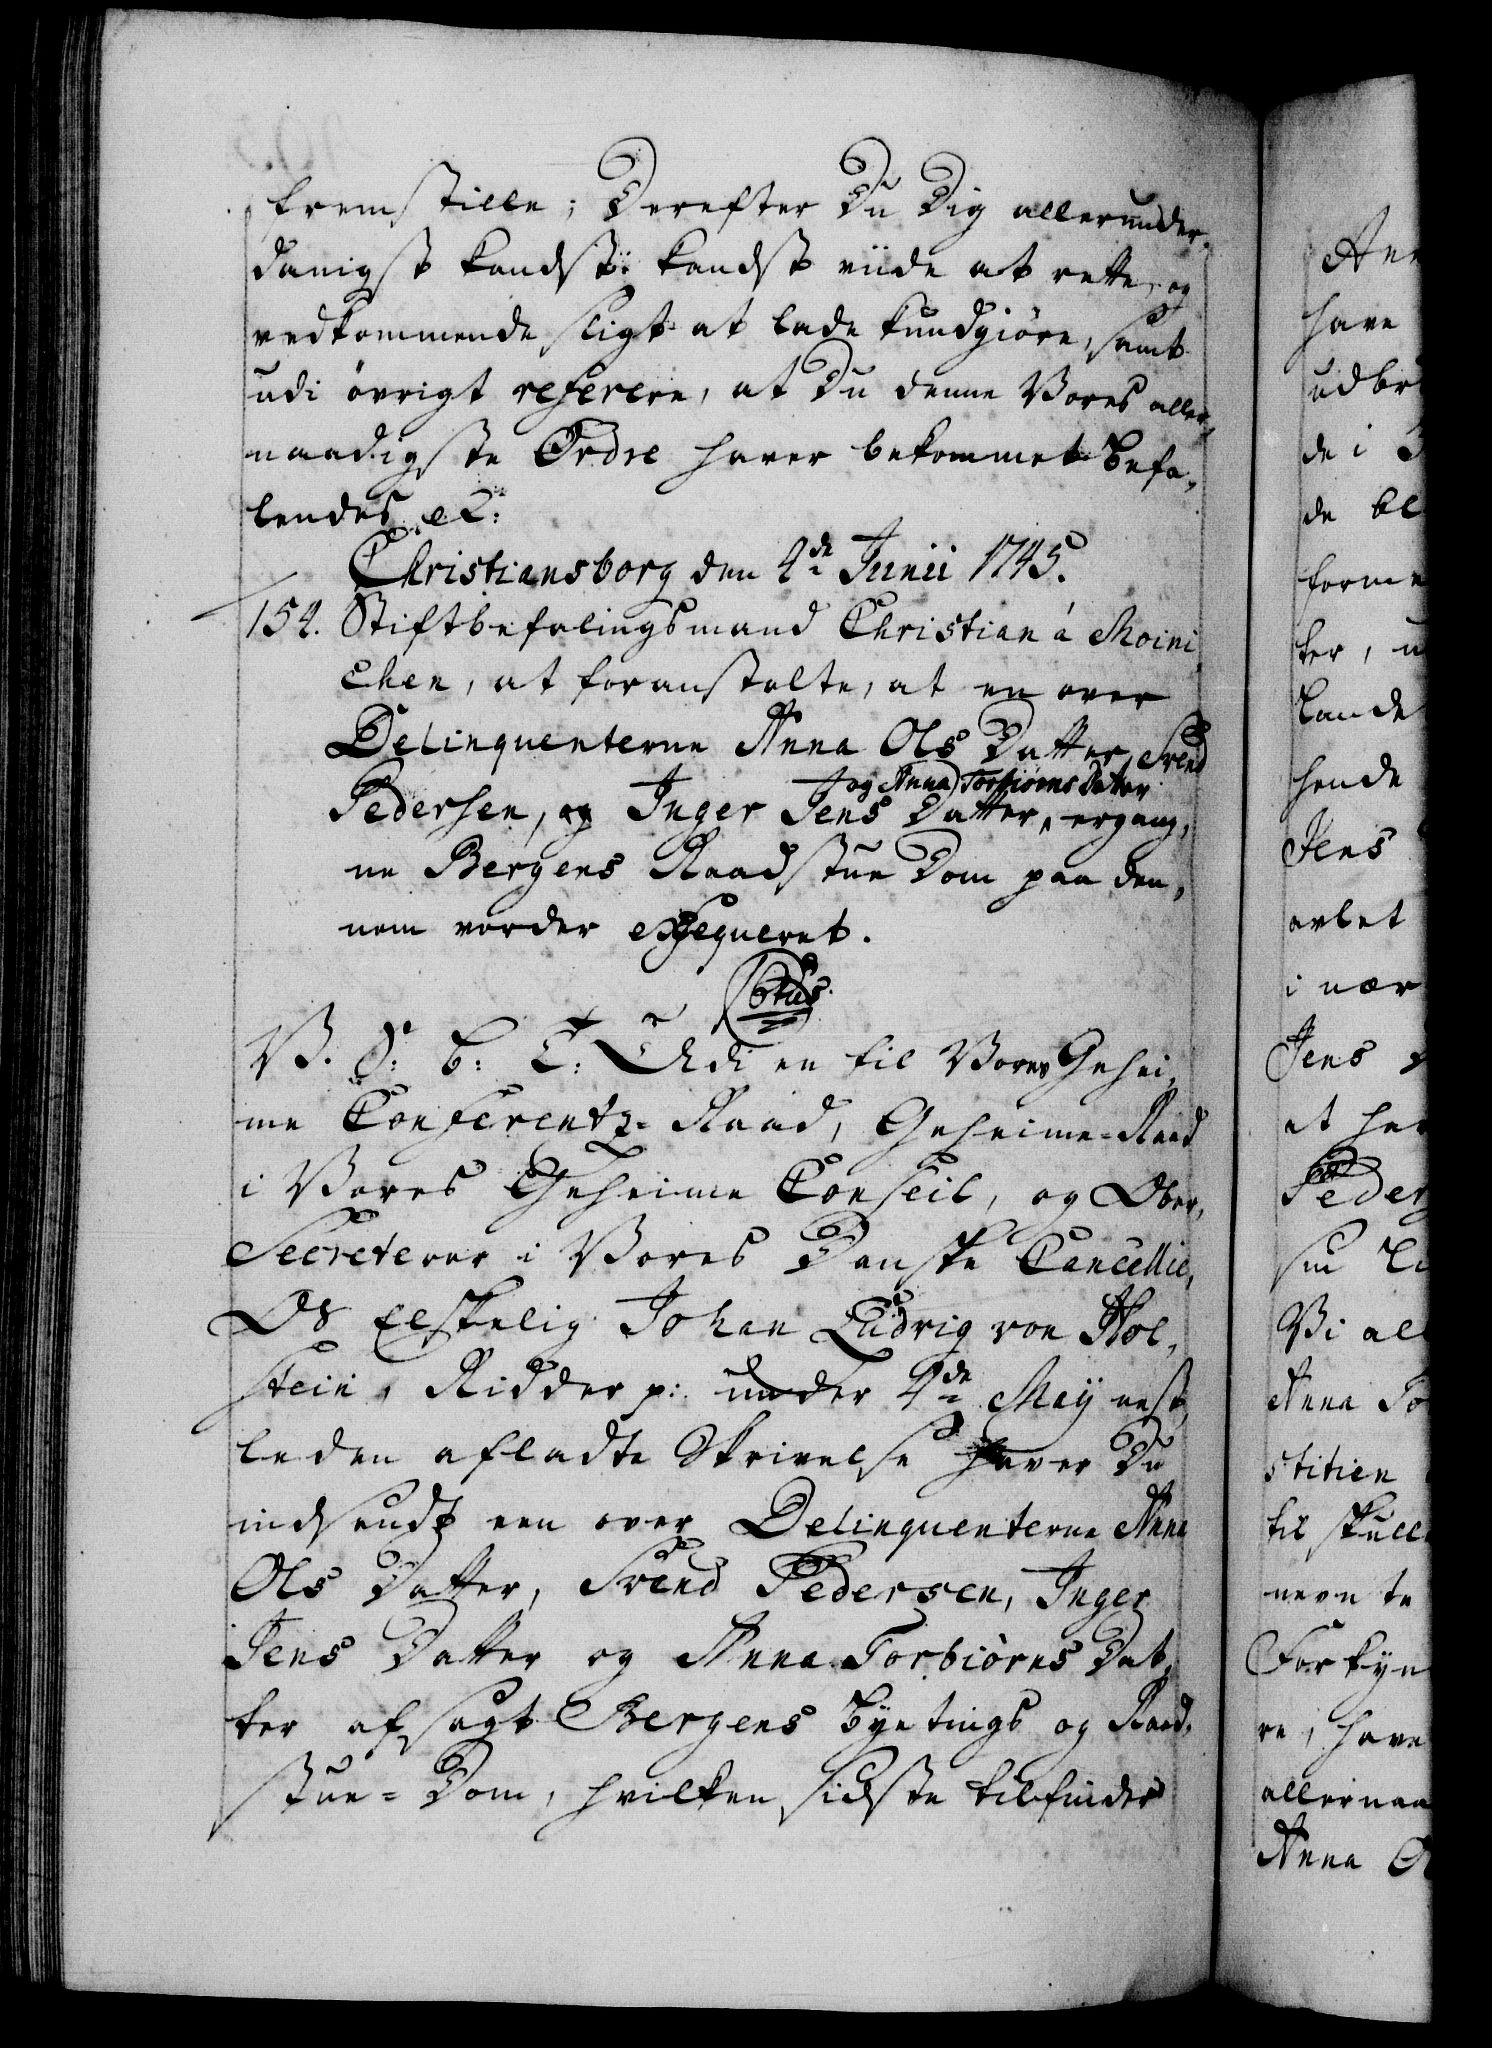 fremstille; Derefter Du Dig allerunder-
danigst kandst: kandst viide at rette, og
vedkommende sligt at lade kundgiöre, samt
udi övrigt referere, at Du denne Vores aller-
naadigste Ordre haver bekommet. Befa-
lendes etc:
Christiansborg den 4de Junii 1745.
154. Stiftbefalingsmand Christian á Moini-
chen, at foranstalte, at en over
Delinquenterne Anna Ols Datter, Svend
og Anna Torbiörns Datter
Pedersen, og Inger Jens Datter, ergang-
ne Bergens Raadstue Dom paa den-
nem vorder exseqveret.
V. S: B: T: Udi en til Vores Gehei-
me Conferentz-Raad, Geheime-Raad
i Vores Geheime Conseil, og Ober-
Secreterer i Vores Danske Cancellie,
Os Elskelig Johan Ludvig von Hol-
stein, Ridder p: under 4de Maij nest-
leden afladte Skrivelse haver Du
indsendt een over Delinquenterne Anna
Ols Datter, Svend Pedersen, Inger
Jens Datter og Anna Torbiörns Dat-
ter afsagt Bergens Byetings og Raad-
stue-Dom, hvilken sidste tilfinder
have
de i
hende
Jens
avlet
i nær
Jens
Vi al
Anna To
stitien
til skull
nevnte
re, have
allernaa
Anna O